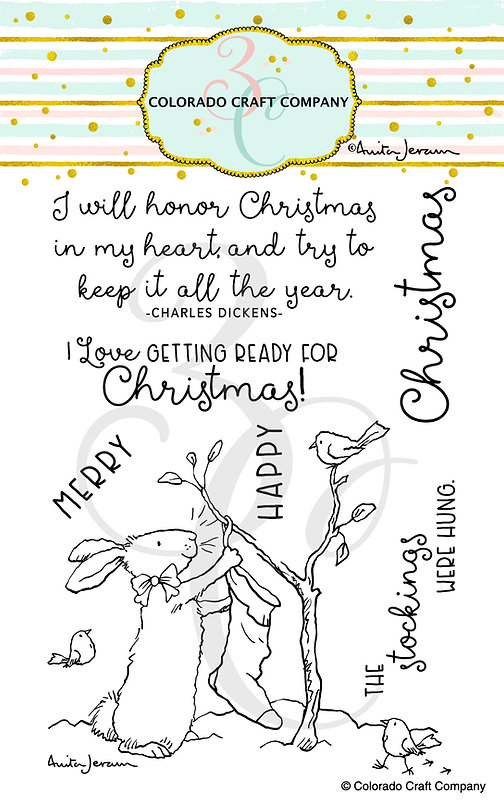 3C
COLORADO CRAFT COMPANY
©Anita Jeram
I will honor Christmas
in my heart, and try to
keep it all the year.
-CHARLES DICKENS-
Christmas
I Love GETTING READY FOR
Christmas!
MERRY
HAPPY
THE stockings
WERE HUNG.
Anita Jeram
© Colorado Craft Company